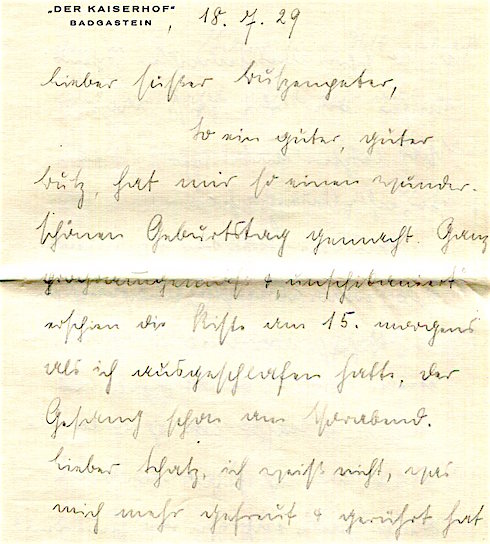 „DER KAISERHOF“
BADGASTEIN, 18. 7. 29
Lieber süsser Butzenpeter,
So ein guter, guter
Butz, hat mir so einen wunder-
schönen Geburtstag gemacht. Ganz
programmgemäss & „unschikaniert“
erschien die Kiste am 15. morgens
als ich ausgeschlafen hatte, der
Gesang schon am Vorabend.
Lieber Schatz, ich weiß nicht, was
mich mehr gefreut & gerührt hat